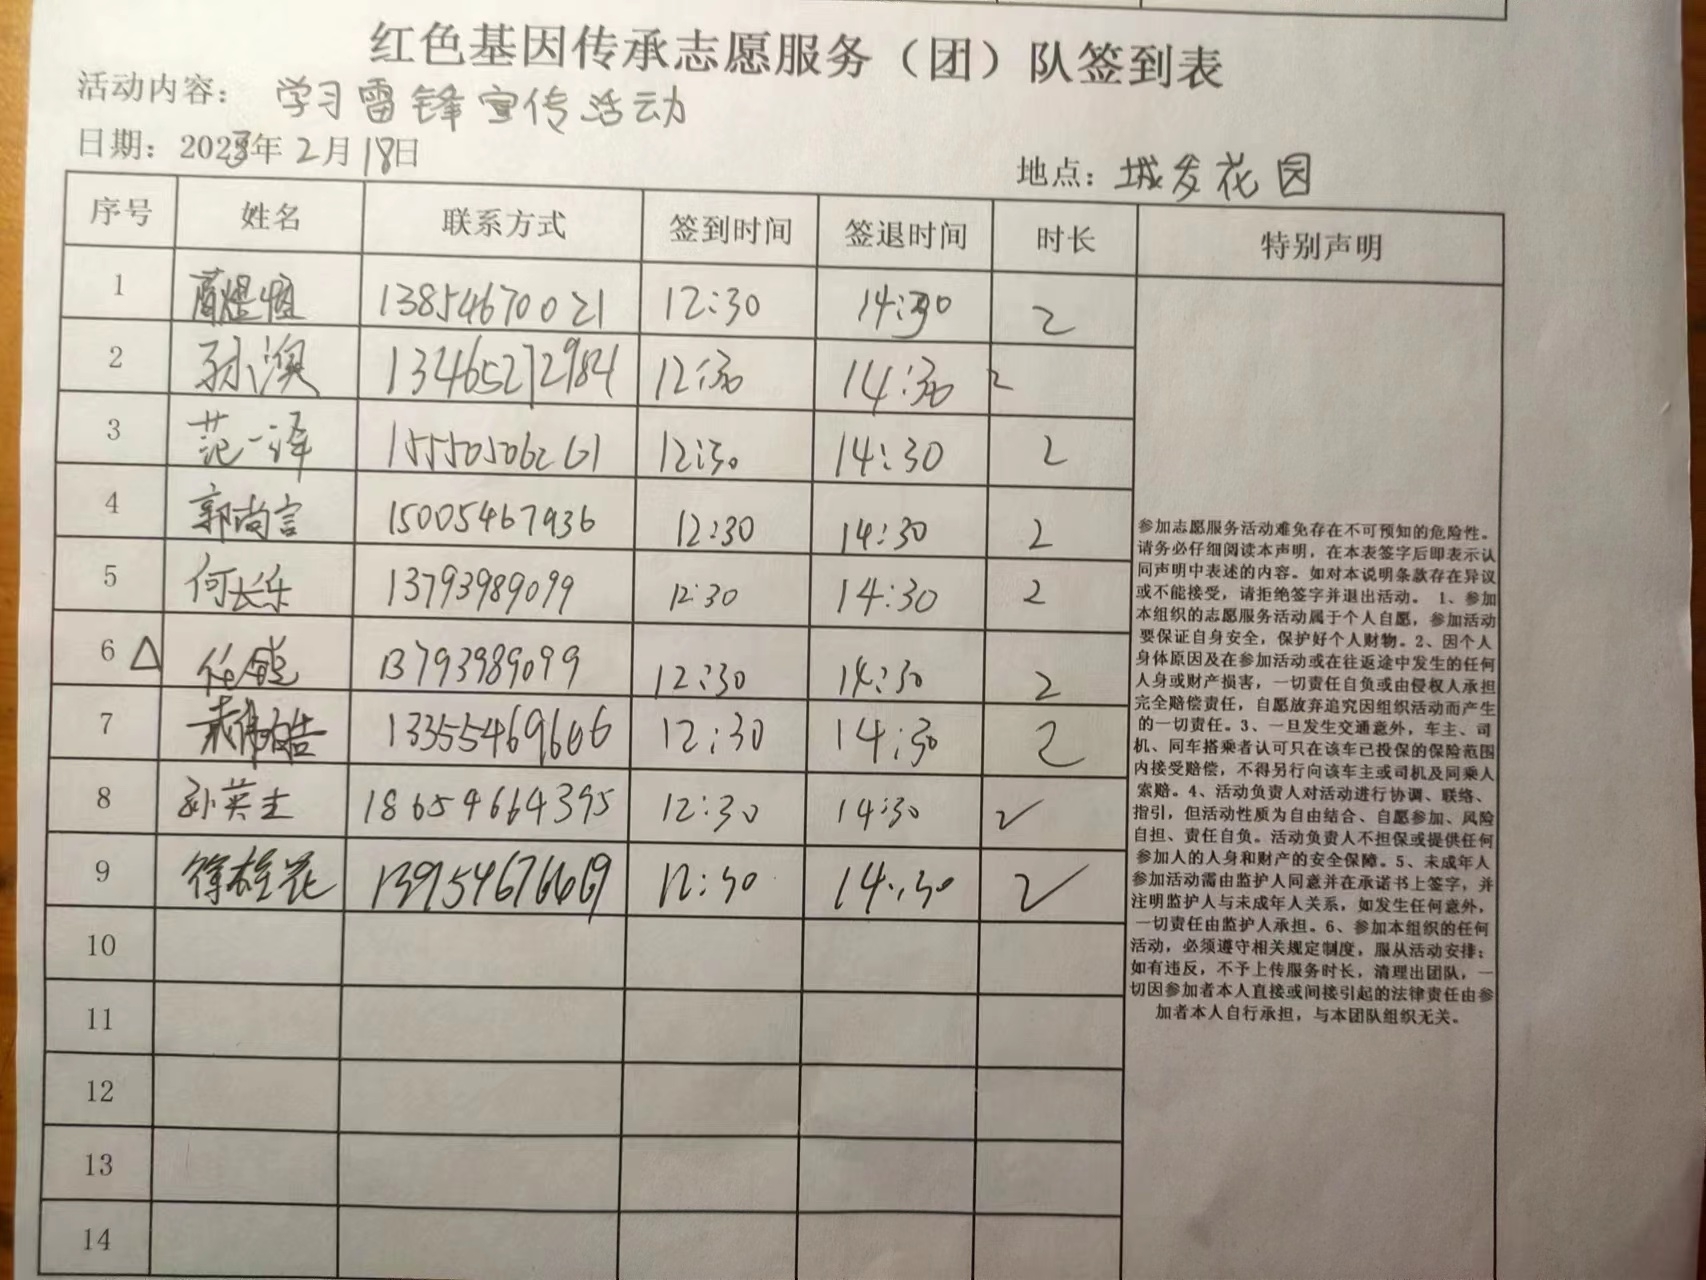 红色基因传承志愿服务（团）队签到表
活动内容： 学习雷锋宣传活动
日期：2023年2月18日
地点：城发花园
序号 姓名 联系方式 签到时间 签退时间 时长 特别声明
1 13854670021 12:30 14:30 2
2 孙澳 13465272984 12:30 14:30 2
3 范一泽 15550506261 12:30 14:30 2
4 郭尚言 15005467936 12:30 14:30 2
5 何长乐 13793989099 12:30 14:30 2
6 △ 13793989099 12:30 14:30 2
7 13355469666 12:30 14:30 2
8 孙英杰 18654664395 12:30 14:30 2
9 徐桂花 13954676669 12:30 14:30 2
10
11
12
13
14
参加志愿服务活动难免存在不可预知的危险性。
请务必仔细阅读本声明，在本表签字后即表示认
同声明中表述的内容。如对本说明条款存在异议
或不能接受，请拒绝签字并退出活动。 1、参加
本组织的志愿服务活动属于个人自愿，参加活动
要保证自身安全，保护好个人财物。2、因个人
身体原因及在参加活动或在往返途中发生的任何
人身或财产损害，一切责任自负或由侵权人承担
完全赔偿责任，自愿放弃追究因组织活动而产生
的一切责任。3、一旦发生交通意外，车主、司
机、同车搭乘者认可只在该车已投保的保险范围
内接受赔偿，不得另行向该车主或司机及同乘人
索赔。4、活动负责人对活动进行协调、联络、
指引，但活动性质为自由结合、自愿参加、风险
自担、责任自负。活动负责人不担保或提供任何
参加人的人身和财产的安全保障。5、未成年人
参加活动需由监护人同意并在承诺书上签字，并
注明监护人与未成年人关系，如发生任何意外，
一切责任由监护人承担。6、参加本组织的任何
活动，必须遵守相关规定制度，服从活动安排；
如有违反，不予上传服务时长，清理出团队，一
切因参加者本人直接或间接引起的法律责任由参
加者本人自行承担，与本团队组织无关。